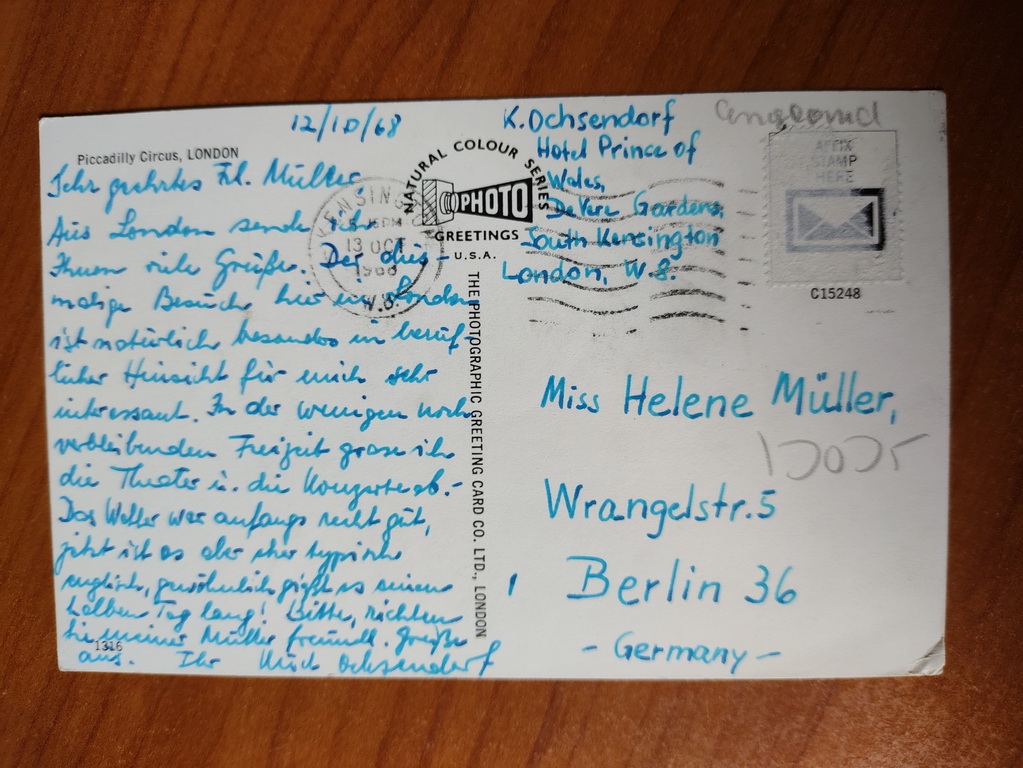 12/10/68
Piccadilly Circus, LONDON
Sehr geehrtes Frl. Müller,
Aus London sende ich
Ihnen viele Grüße. Der dies-
malige Besuch hier in London
ist natürlich besonders in beruf-
licher Hinsicht für mich sehr
interessant. In der wenigen noch
verbleibenden Freizeit grase ich
die Theater u. die Konzerte ab.-
Das Wetter war anfangs recht gut,
jetzt ist es aber eher typisch
englisch, gewöhnlich gießt es einen
halben Tag lang! Bitte, richten
Sie meiner Mutter freundl. Grüße
aus. Ihr Ochsendorf
1316
KENSINGTON
PM
13 OCT
1968
W.8.
NATURAL COLOUR SERIES
PHOTO
GREETINGS
U.S.A.
THE PHOTOGRAPHIC GREETING CARD CO. LTD., LONDON
K. Ochsendorf
Hotel Prince of
Wales,
De Vere Gardens,
South Kensington
London, W. 8.
AFFIX
STAMP
HERE
C15248
Miss Helene Müller,
Wrangelstr. 5
Berlin 36
- Germany -